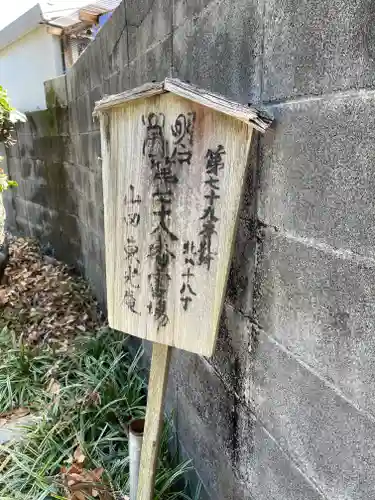 第七十九番
北へ十八丁
明治
四国
第七十八番霊場
山田東光庵